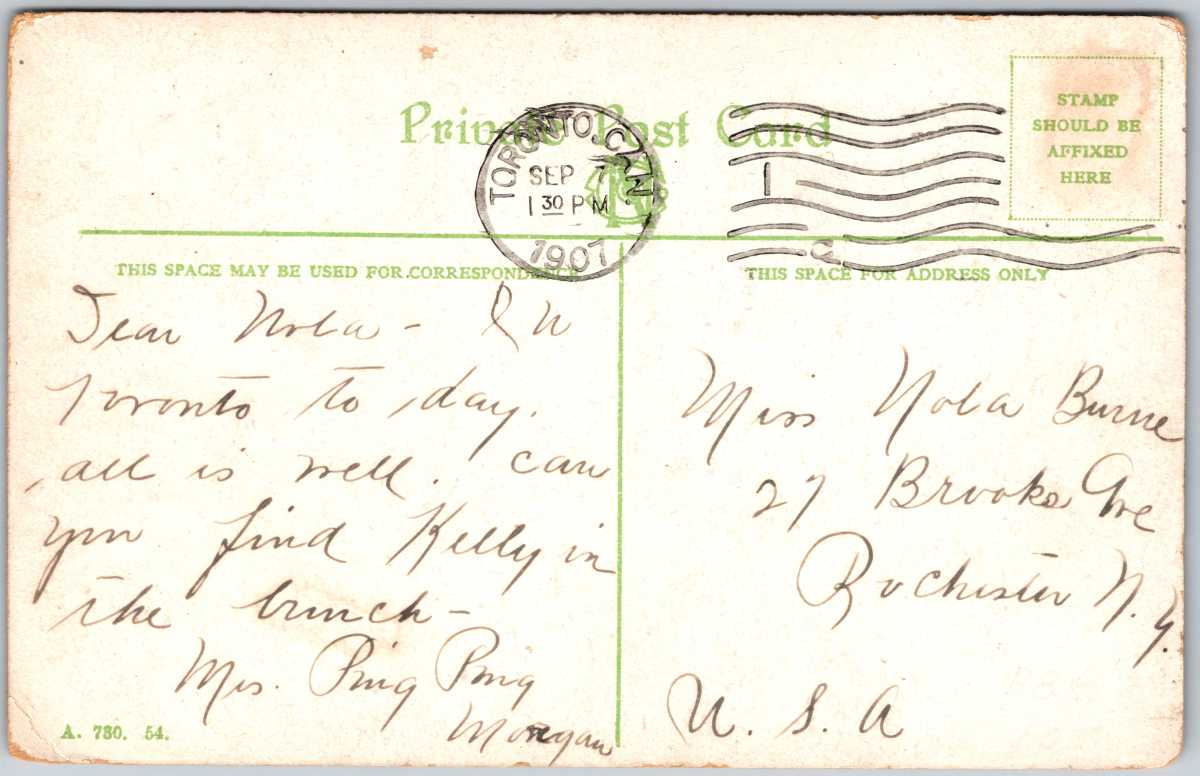 Private Post Card
TORONTO, CAN.
SEP 7
1 30 PM
1907
1
a
STAMP
SHOULD BE
AFFIXED
HERE
THIS SPACE MAY BE USED FOR CORRESPONDENCE
THIS SPACE FOR ADDRESS ONLY
Dear Nola - In
Toronto to day.
all is well. Can
you find Kelly in
the bunch -
Mrs. Ping Pong
Morgan
Miss Nola Burne
27 Brooks Ave
Rochester N.Y.
U. S. A
A. 730. 54.